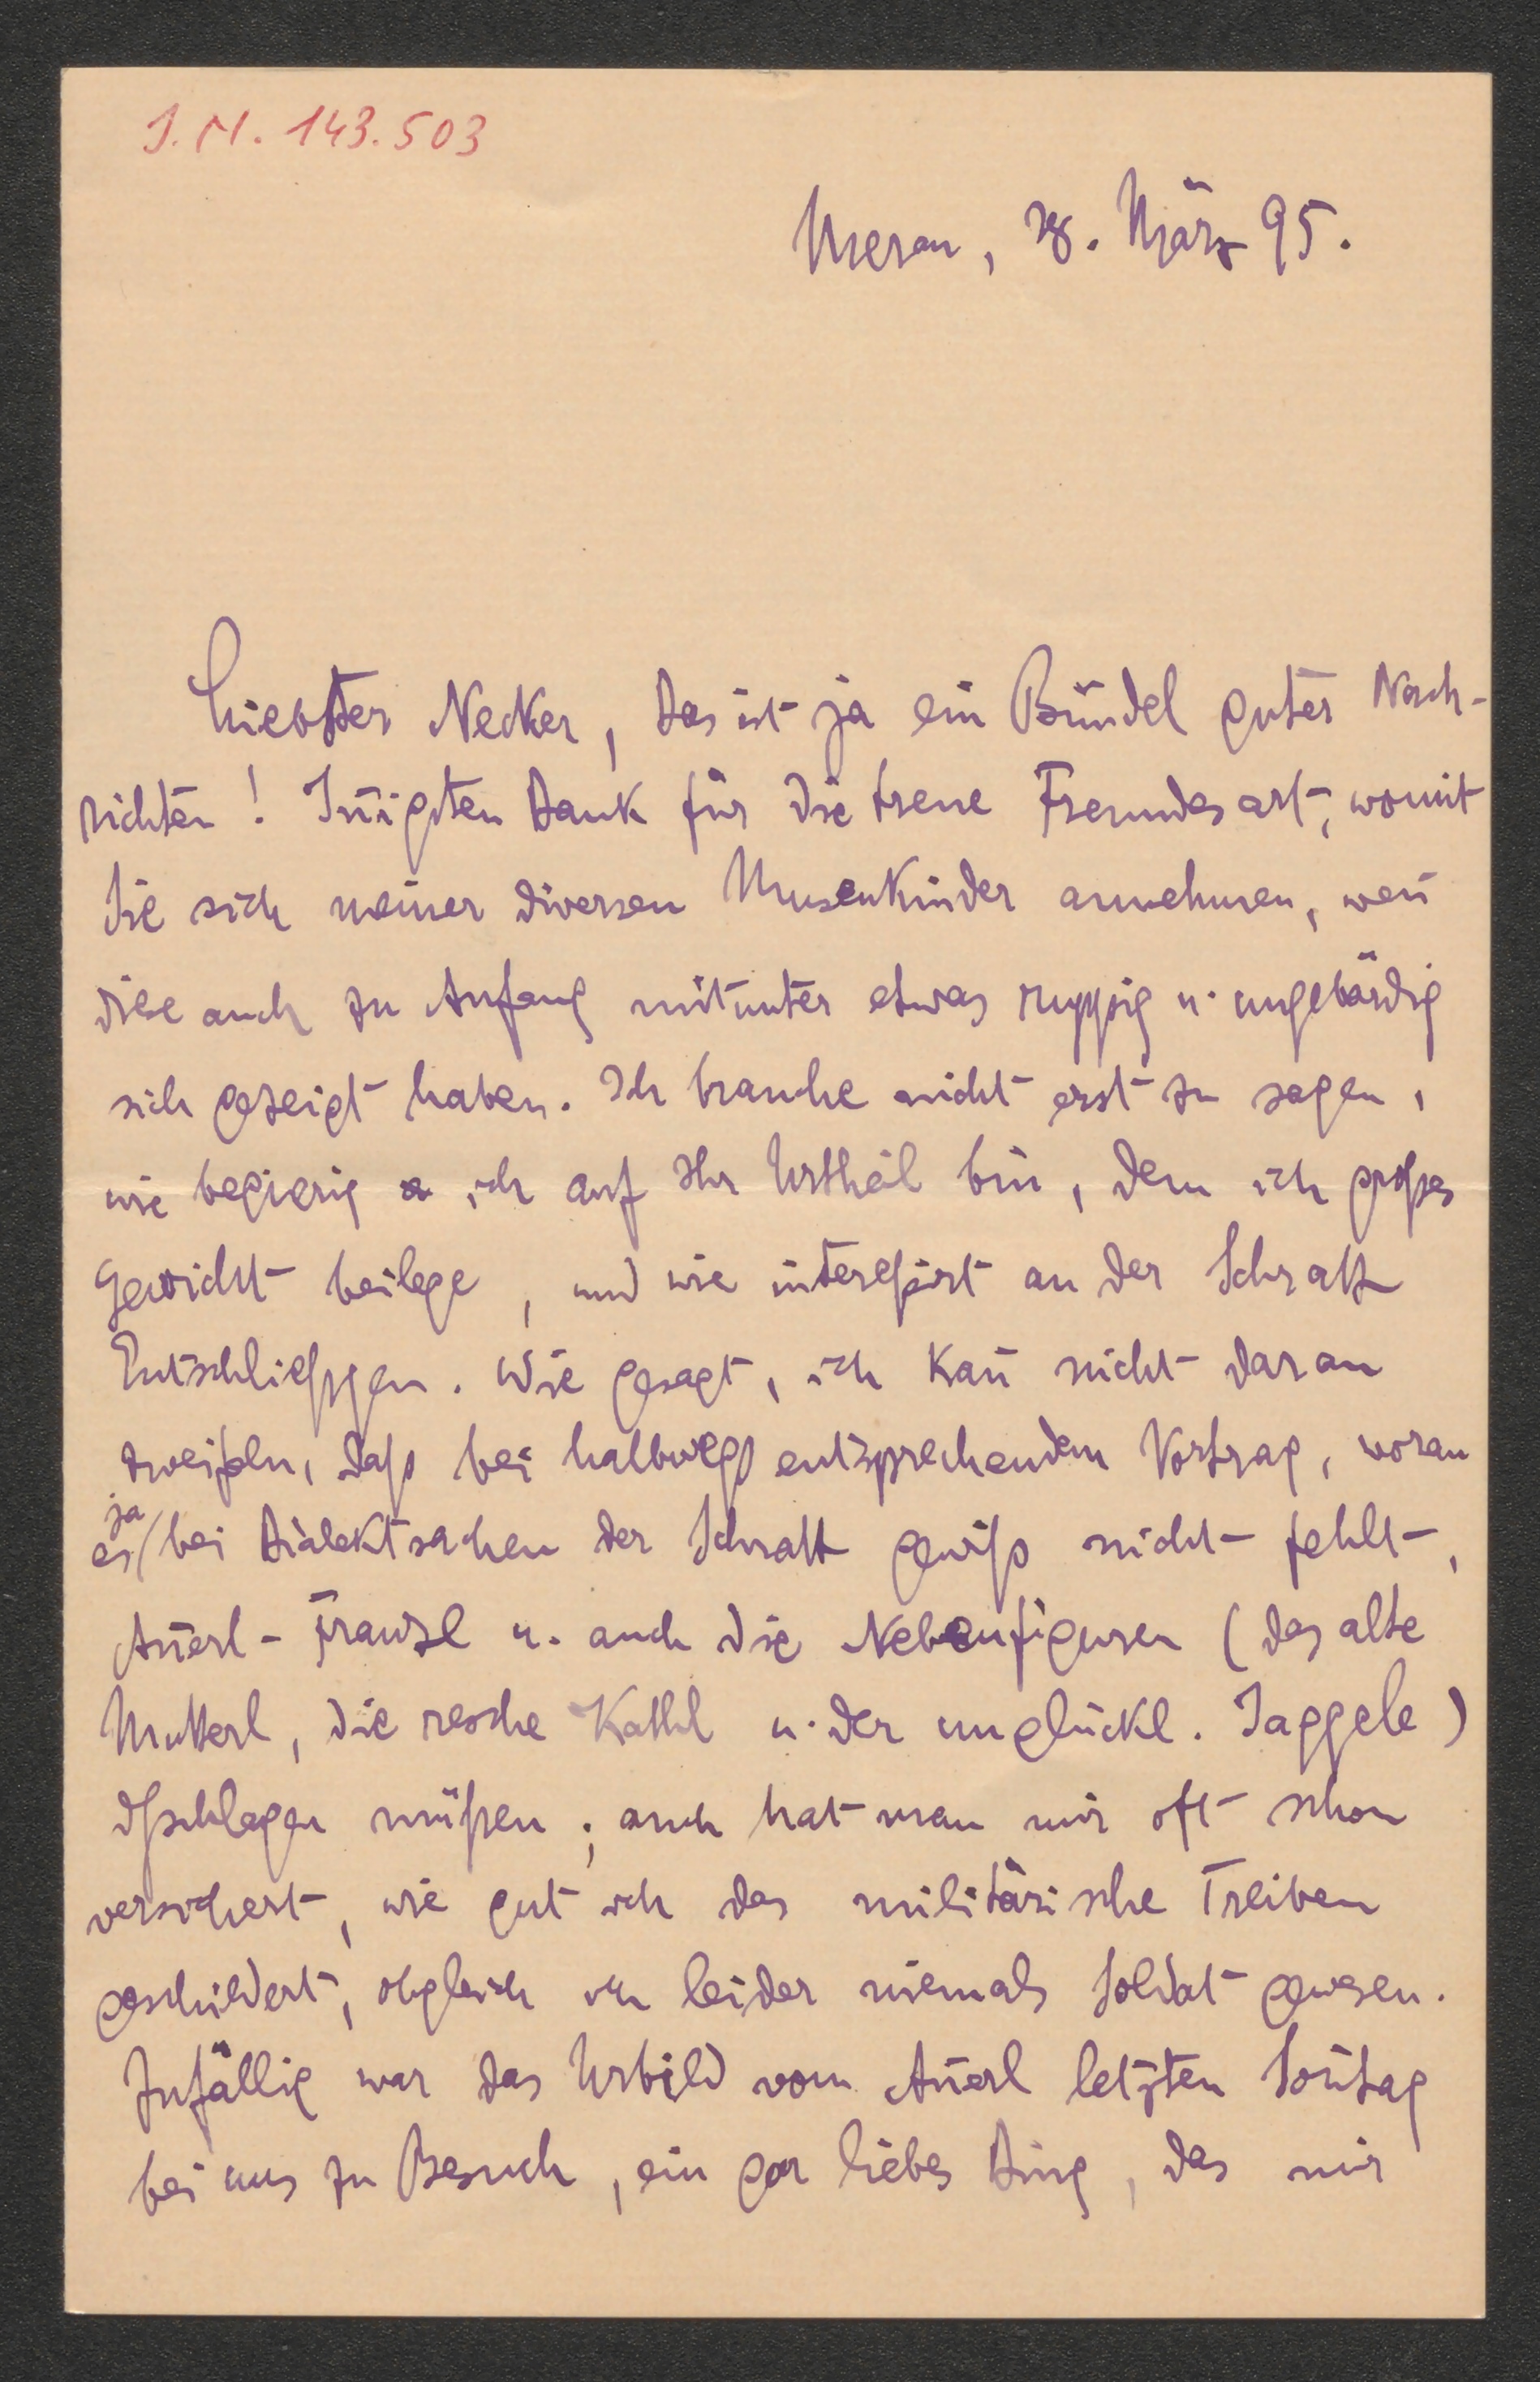 J.N. 143.503
Meran, 28. März 95.
Liebster Necker, das ist ja ein Bündel guter Nach-
richten! Iñigsten Dank für die treue Freundesart, womit
Sie sich meiner diversen Musenkinder annehmen, weñ
diese auch zu Anfang mitunter etwas ruppig u. ungebärdig
sich gezeigt haben. Ich brauche nicht erst zu sagen,
wie begierig ich auf Ihr Urtheil bin, dem ich großes
Gewicht beilege, und wie interessirt an der Schratt
Entschließgen. Wie gesagt, ich kañ nicht daran
zweifeln, daß bei halbwegs entsprechendem Vortrag, woran
es ja bei Dialektsachen der Schratt gewiß nicht fehlt,
Añerl-Franzl u. auch die Nebenfiguren (das alte
Mutterl, die resche Kathl u. der unglückl. Jaggele)
dschlagen müßen; auch hat man mir oft schon
versichert, wie gut ich das militärische Treiben
geschildert, obgleich ich leider niemals Soldat gewesen.
Zufällig war das Urbild vom Añerl letzten Soñtag
bei uns zu Besuch, ein gar liebes Ding, das mir